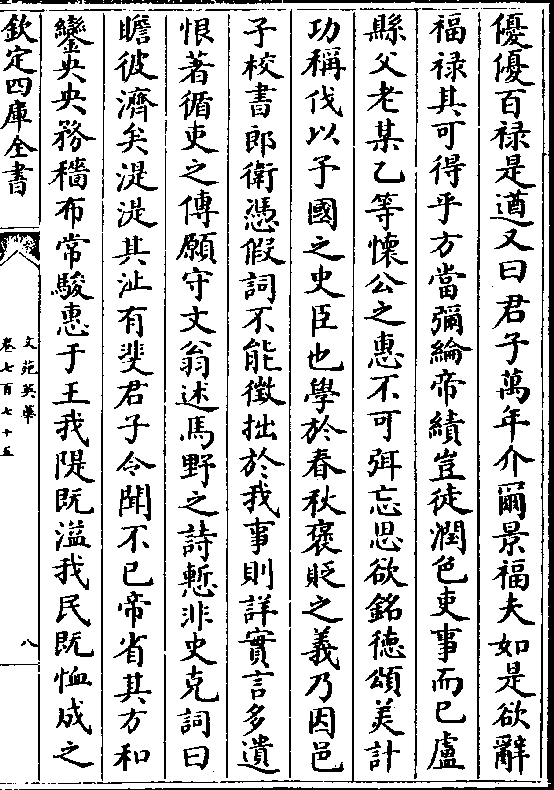 優優百禄是遒又曰君子萬年介爾景福夫如是欲辭
福禄其可得乎方當彌綸帝績豈徒潤色吏事而已盧
縣父老某乙等懷公之惠不可弭忘思欲銘徳頌美計
功稱伐以予國之史臣也學於春秋褒貶之義乃因邑
子校書郎衛憑假詞不能徵拙於我事則詳實言多遺
恨著循吏之傳願守文翁述馬野之詩慙非史克詞曰
瞻彼濟矣湜湜其沚有斐君子令聞不已帝省其方和
鑾央央務穡布常駿惠于王我隄既溢我民既恤成之
欽定四庫全書
文苑英華
卷七百七十五
八